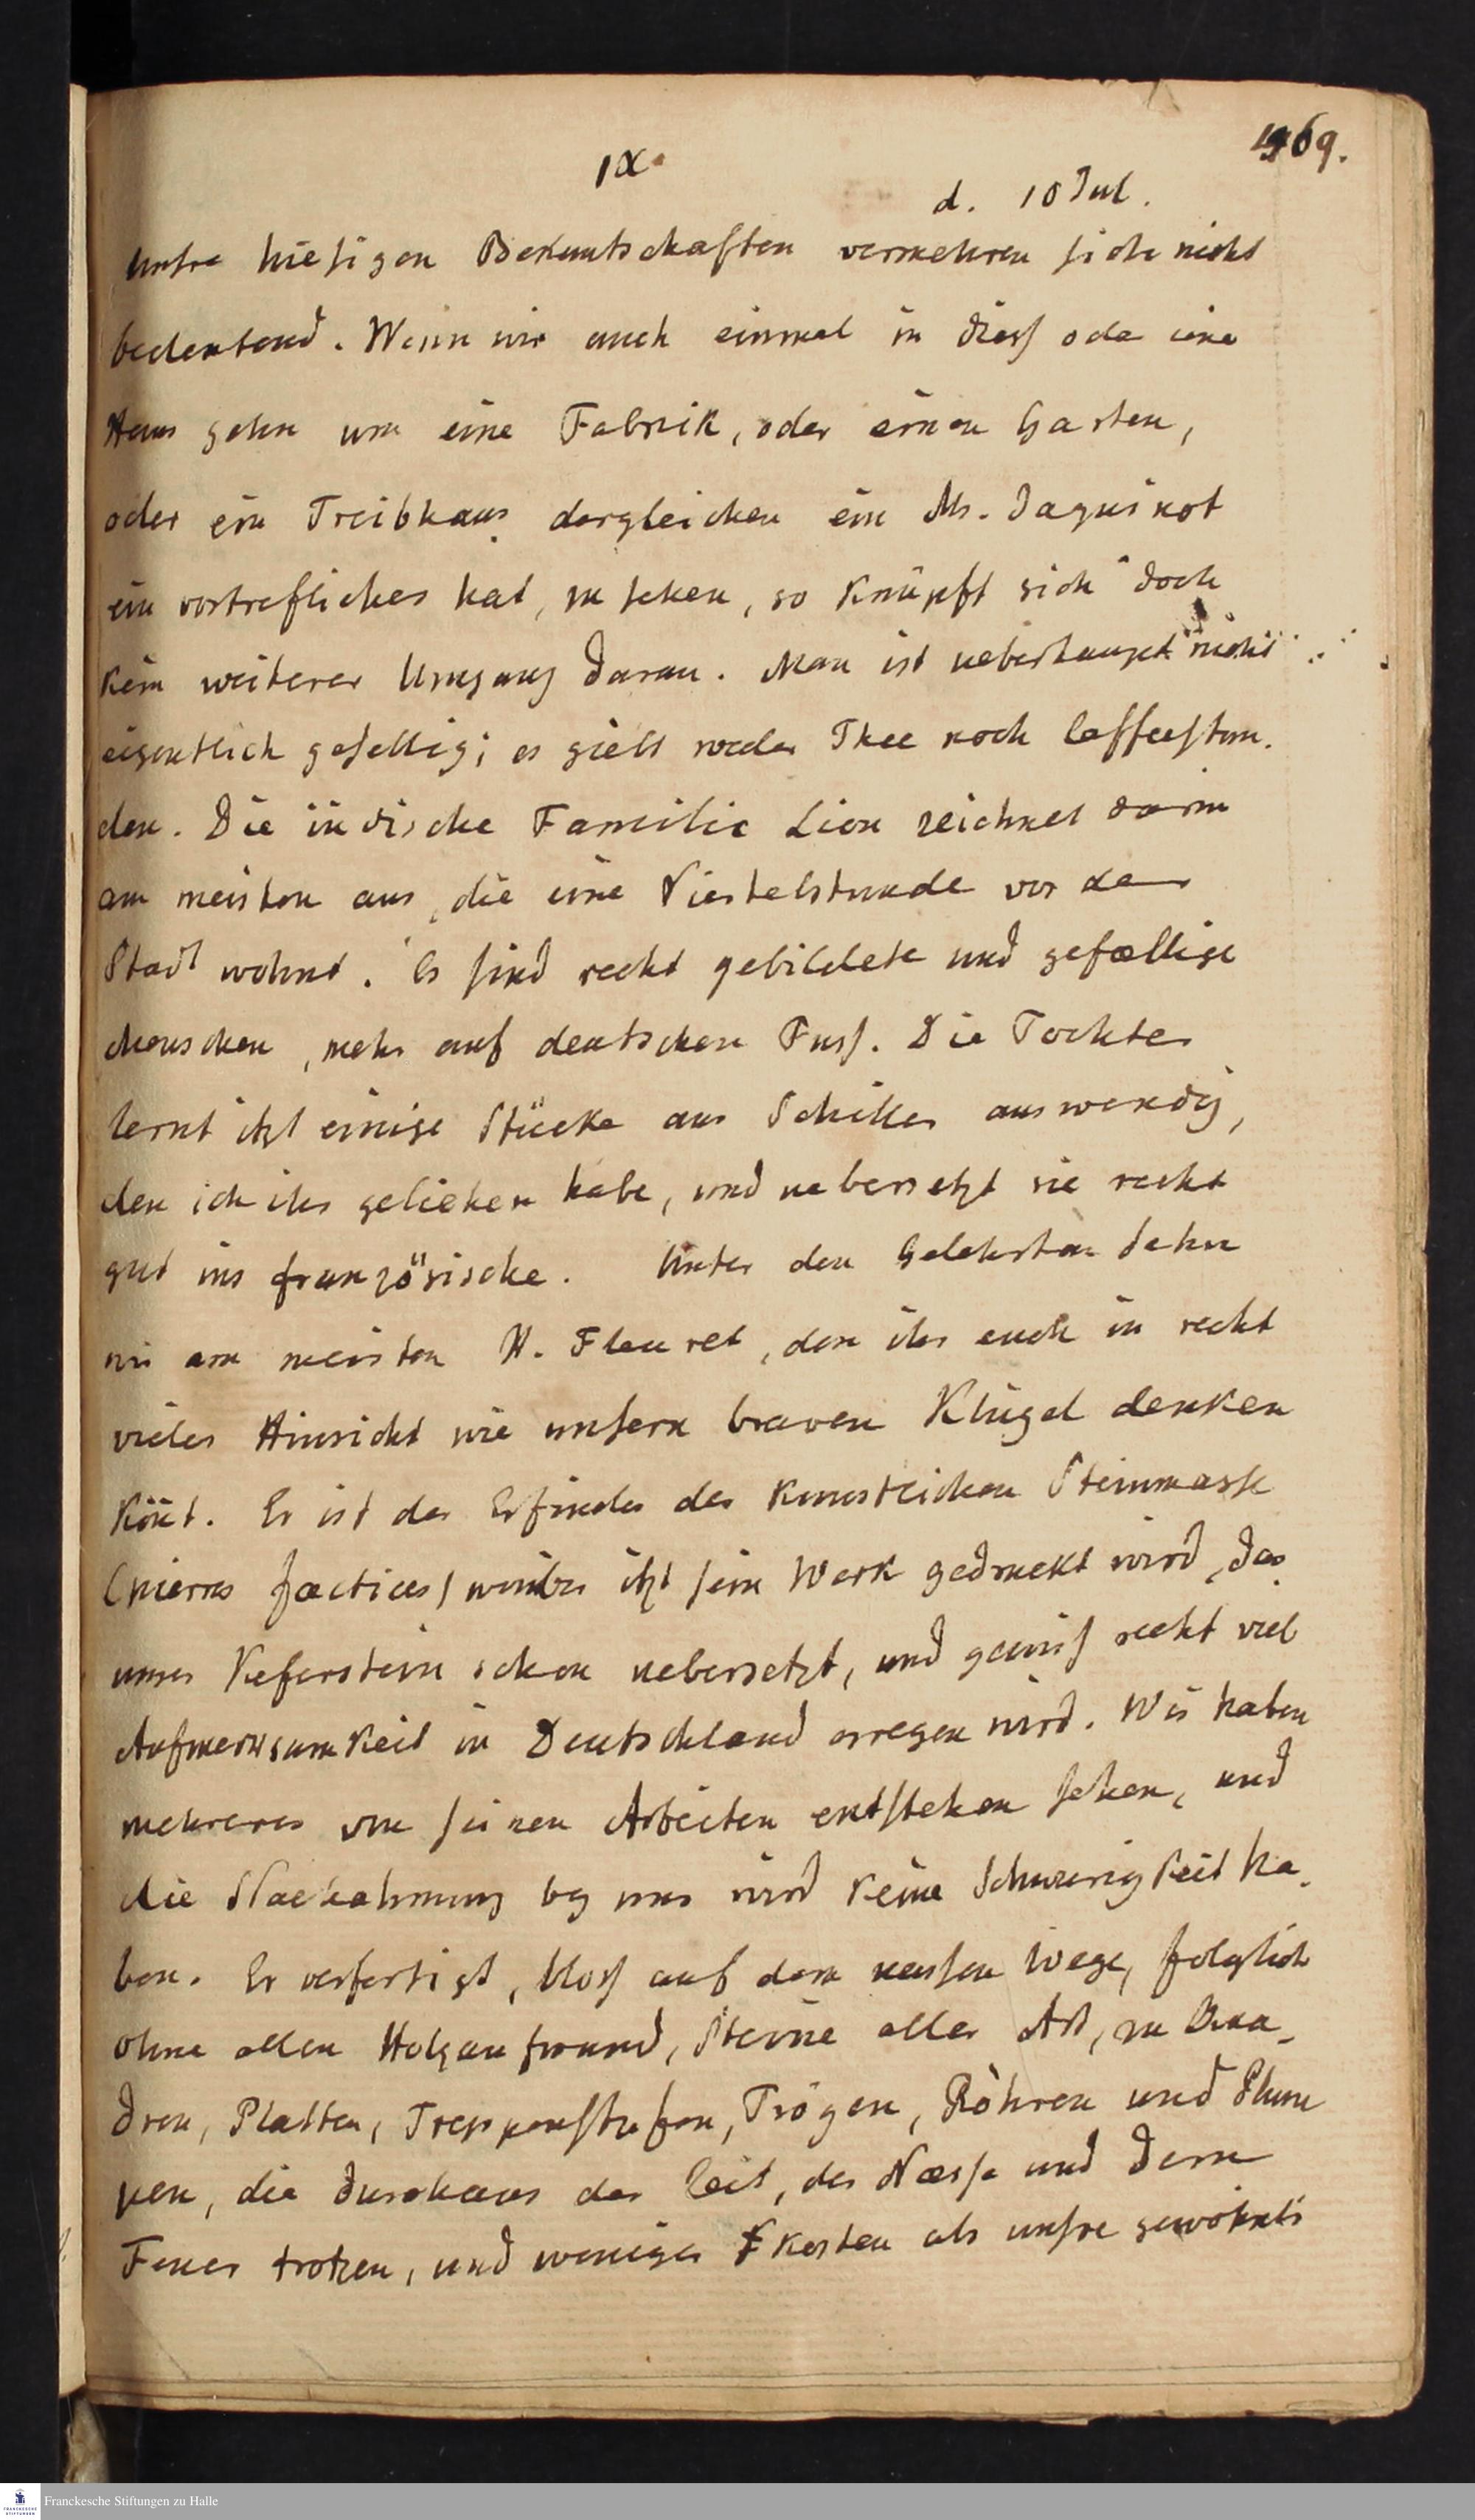 169.
IX.
d. 10 Jul.
Unsre hiesigen Bekantschaften vermehren sich nicht
bedeutend. Wenn wir auch einmal in dies oder jene
Haus gehn um eine Fabrik, oder einen Garten,
oder ein Treibhaus dergleichen ein Mr. Jaquinot
ein vortrefliches hat, zu sehen, so knüpft sich doch
kein weiterer Umgang daran. Man ist ueberhaupt nicht
eigentlich gesellig; es giebt weder Thee noch Caffeestun-
den. Die jüdische Familie Lion zeichnet darin
am meisten aus, die eine Viertelstunde vor der
Stadt wohnt. Es sind recht gebildete und gefællige
Menschen, mehr auf deutschen Fuss. Die Tochter
lernt itzt einige Stücke aus Schiller auswendig,
den ich ihr geliehen habe, und uebersetzt sie recht
gut ins französische. Unter den Gelehrten sehn
wir am meisten H. Fleuret, den ihr euch in recht
vieler Hinsicht wie unsern braven Klügel denken
könt. Er ist der Erfinder der kunstlichen Steinmasse
(pierres factices) worüber itzt sein Werk gedruckt wird, das
unser Keferstein schon uebersetzt, und gewiss recht viel
Aufmerksamkeit in Deutschland erregen wird. Wir haben
mehreres von seinen Arbeiten entstehen sehen, und
die Nachahmung bey uns wird keine Schwierigkeit ha-
ben. Er verfertigt, bloss auf dem nassen Wege, folglich
ohne allen Holzaufwand, Steine aller Art, zu Qua-
dren, Platten, Treppenstufen, Trögen, Röhren und Plum
pen, die durchaus der Zeit, der Næsse und dem
Feuer trotzen, und weniger kosten als unsre gewöhnli
Franckesche Stiftungen zu Halle